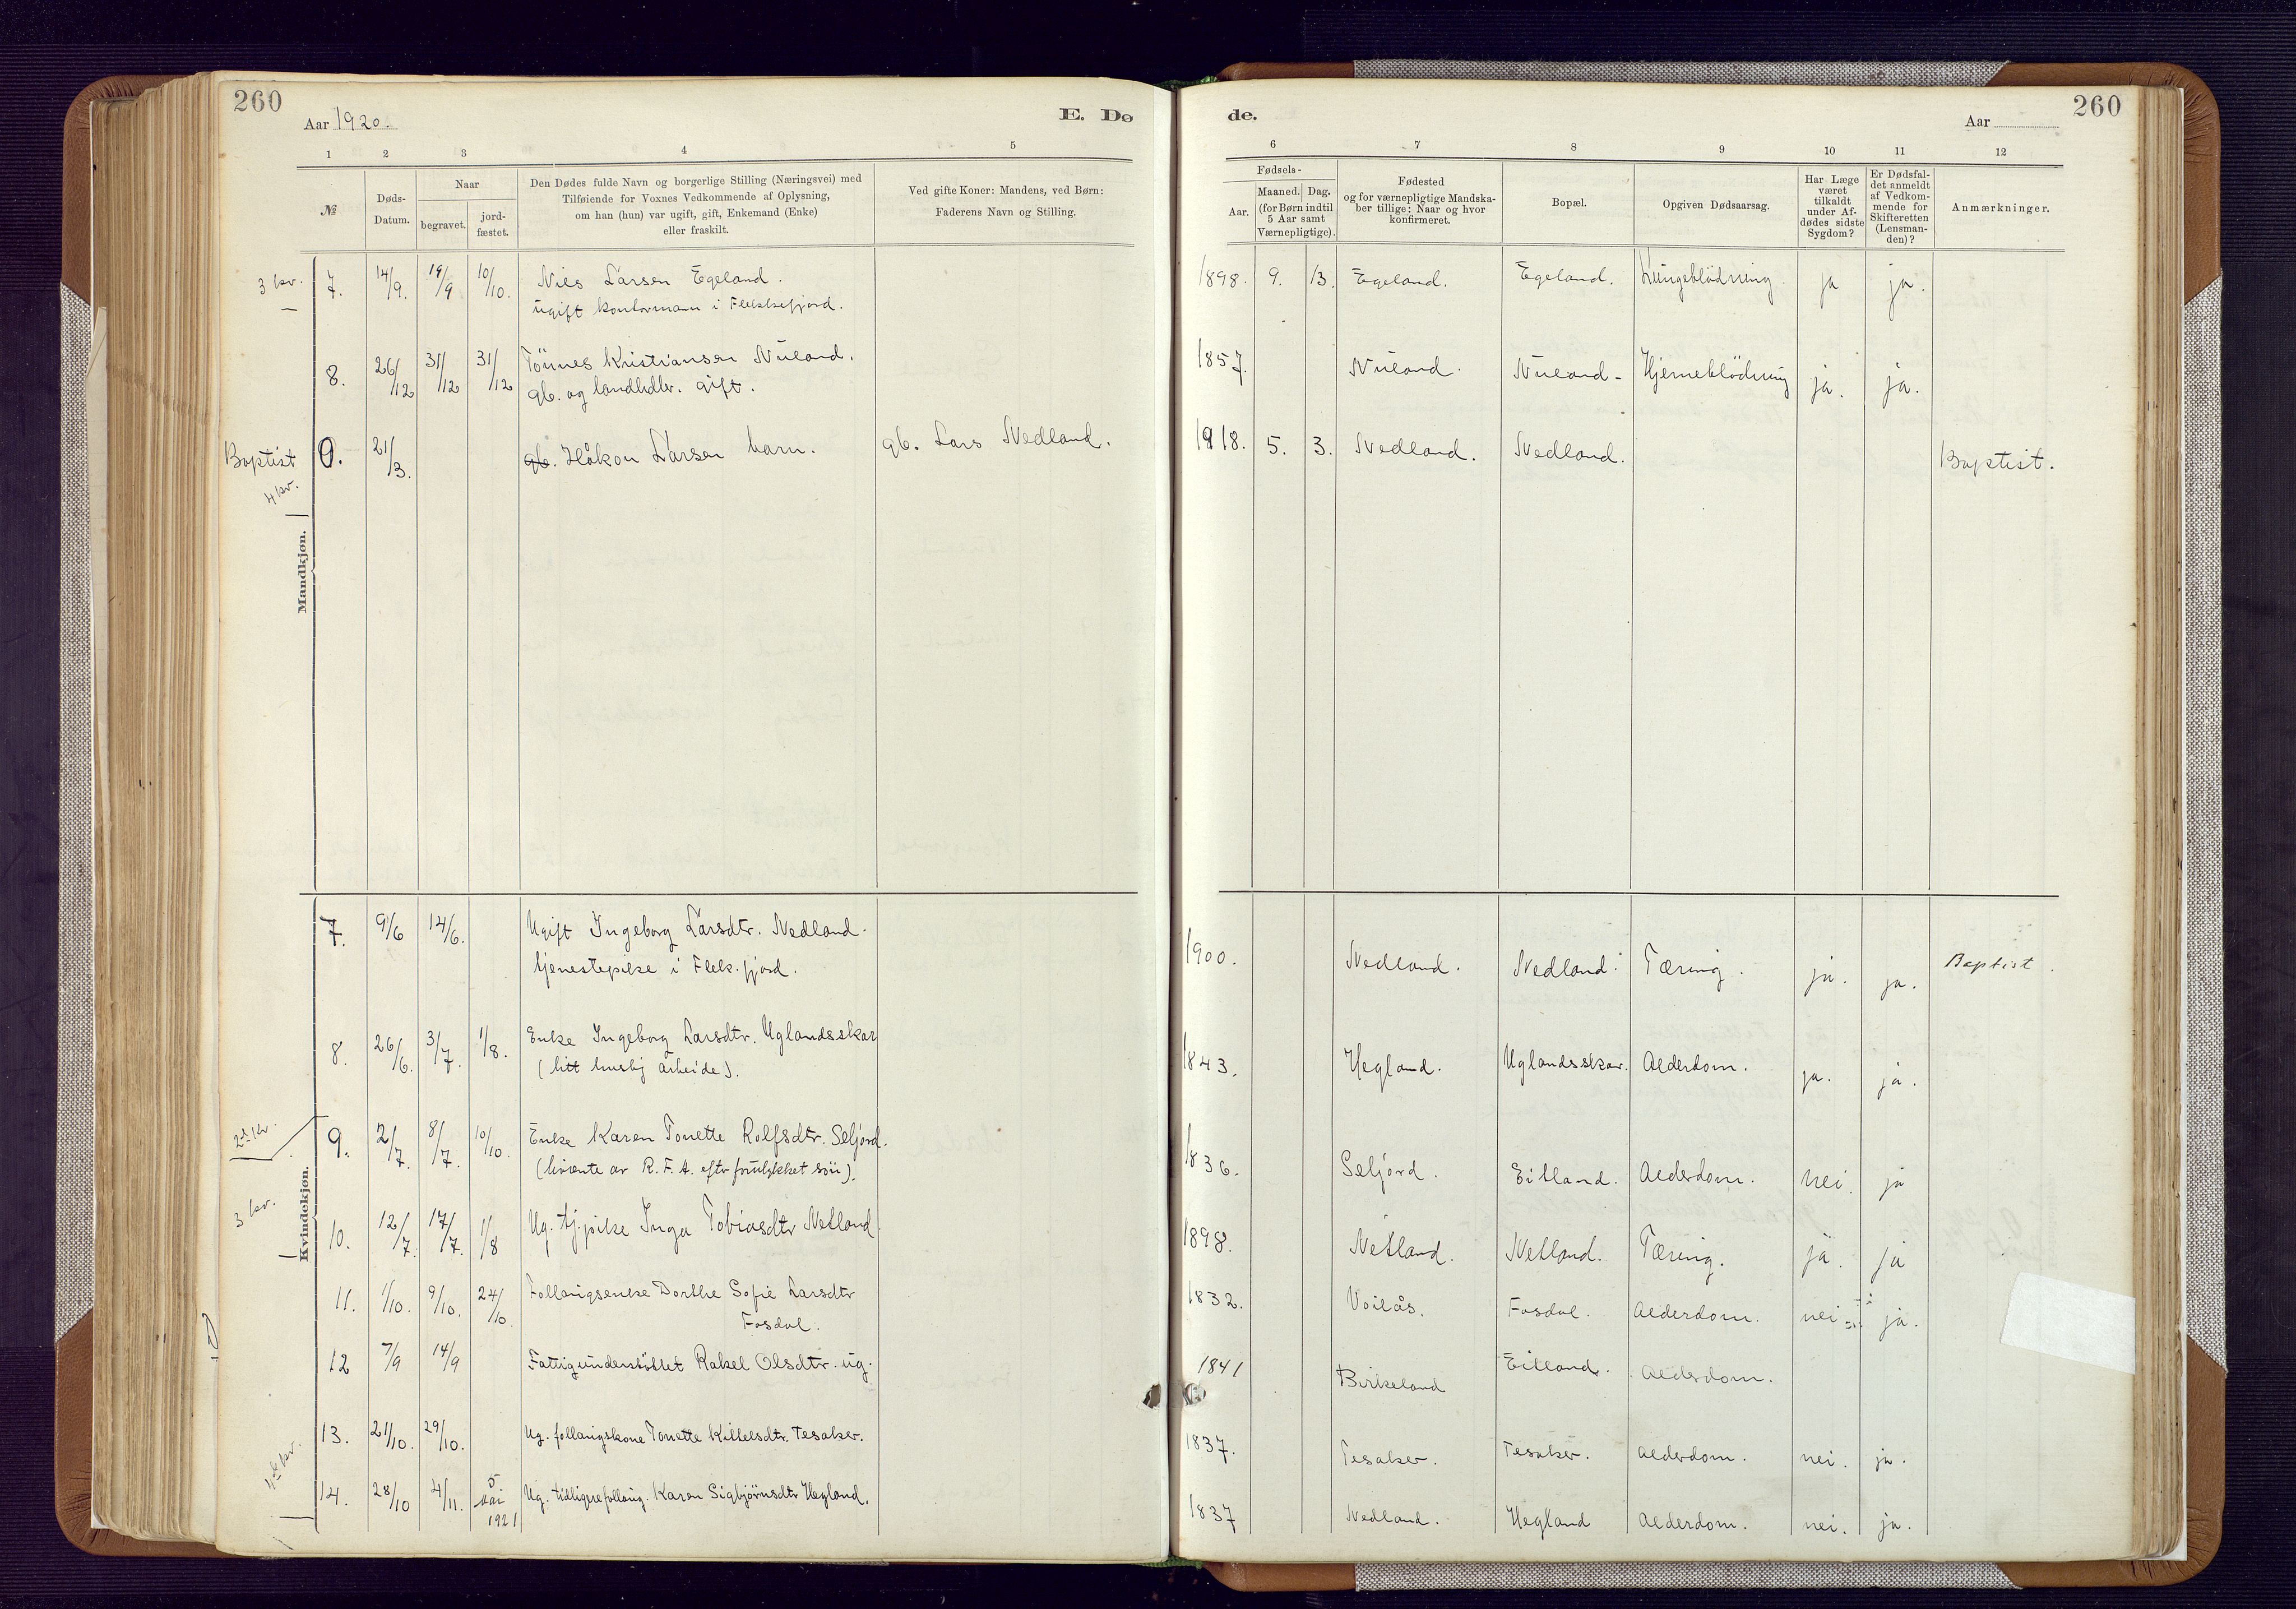 260
Aar 1920.
E. Dø
1 2 3 4 5
№
Døds-
Datum.
Naar
begravet.
jord-
fæstet.
Den Dødes fulde Navn og borgerlige Stilling (Næringsvei) med
Tilføiende for Voxnes Vedkommende af Oplysning,
om han (hun) var ugift, gift, Enkemand (Enke)
eller fraskilt.
Ved gifte Koner: Mandens, ved Børn:
Faderens Navn og Stilling.
3 kv.
7. 14/9. 19/9 10/10. Niels Larsen Egeland.
ugift kontormann i Flekkefjord.
8. 26/12 31/12 31/12 Tönnes Kristiansen Nuland.
gb. og landhdlr. gift.
Baptist 0. 21/3. gb. Håkon Larsen barn. gb. Lars Nedland.
4 kv.
Mandkjøn.
7. 9/6 14/6. Ugift Ingeborg Larsdtr. Nedland.
tjenestepike i Flek.fjord.
8. 26/6. 3/7. 1/8. Enke Ingeborg Larsdtr. Uglandsskar
(litt huslig arbeide).
2det kv.
9. 2/7. 8/7. 10/10. Enke Karen Tonette Rolfsdtr. Seljord.
(livrente av R.F.A. eftr forulykket sön).
3 kv.
Kvindekjøn.
10. 12/7. 17/7. 1/8 Ug. tj.pike Inga Tobiasdtr Netland.
11. 1/10. 9/10. 24/10. Follaugsenke Dorthe Sofie Larsdtr
Fosdal.
12 7/9 14/9 Fattigunderstöttet Rakel Olsdtr. ug.
13. 21/10. 29/10. Ug. follaugskone Tonette Killelsdtr. Tesaker.
4de kv.
14. 28/10 4/11. 5 mai 1921 Ug. tidligere follaug. Karen Sigbjörnsdtr Hegland.
de.
Aar
260
6 7 8 9 10 11 12
Fødsels-
Aar.
Maaned. Dag.
(for Børn indtil
5 Aar samt
Værnepligtige).
Fødested
og for værnepligtige Mandska-
ber tillige: Naar og hvor
konfirmeret.
Bopæl.
Opgiven Dødsaarsag.
Har Læge
været
tilkaldt
under Af-
dødes sidste
Sygdom?
Er Dødsfal-
det anmeldt
af Vedkom-
mende for
Skifteretten
(Lensman-
den)?
Anmærkninger.
1898. 9. 13. Egeland. Egeland. Lungeblödning. ja ja.
1857. Nuland. Nuland. Hjerneblödning ja. ja.
1918. 5. 3. Nedland. Nedland. Baptist.
1900. Nedland. Nedland. Tæring. ja. ja. Baptist.
1843. Hegland. Uglandsskar. Alderdom. ja. ja.
1836. Seljord. Eitland. Alderdom. nei. ja
1898. Netland. Netland. Tæring. ja. ja
1832. Voilås. Fosdal. Alderdom. nei ja.
1841 Birkeland Eitland. Alderdom.
1837. Tesaker. Tesaker. Alderdom. nei. ja.
1837 Nedland. Hegland Alderdom. nei. ja.